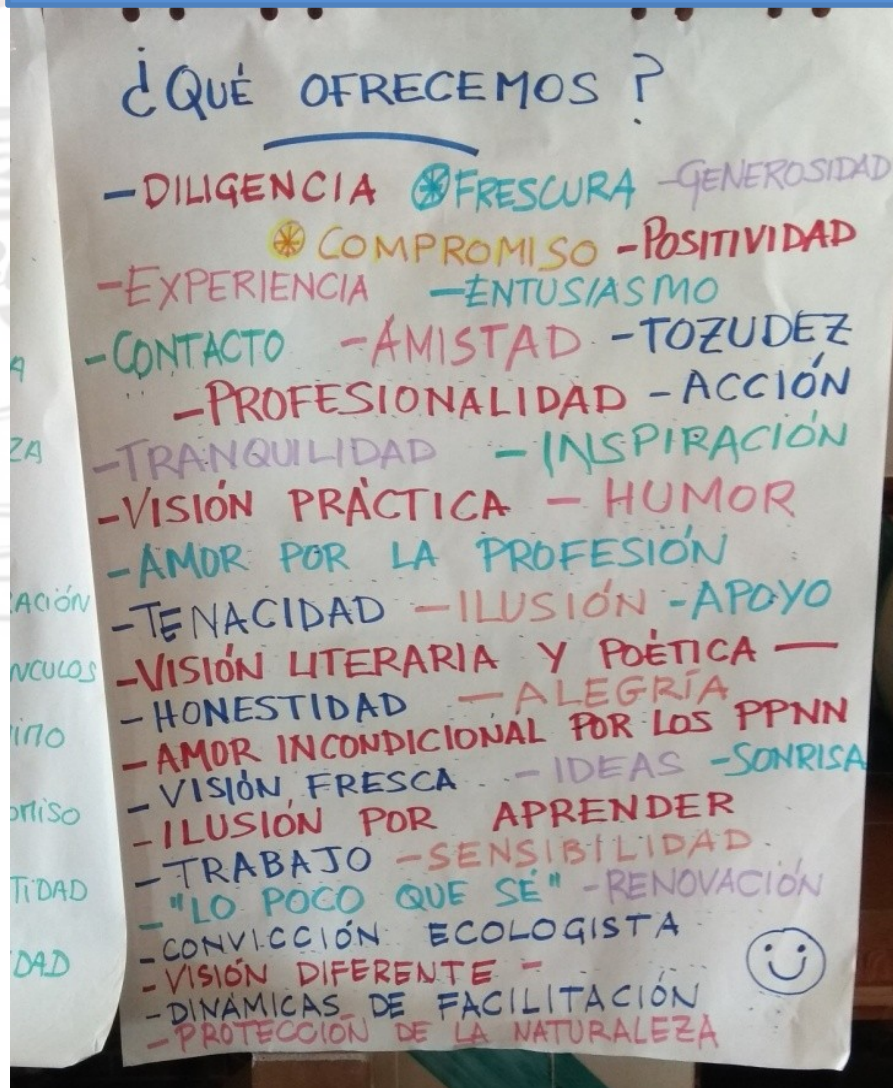 ¿QUÉ OFRECEMOS?
-DILIGENCIA FRESCURA -GENEROSIDAD
COMPROMISO -POSITIVIDAD
-EXPERIENCIA -ENTUSIASMO
-CONTACTO -AMISTAD -TOZUDEZ
-PROFESIONALIDAD -ACCIÓN
-TRANQUILIDAD -INSPIRACIÓN
-VISIÓN PRÁCTICA -HUMOR
-AMOR POR LA PROFESIÓN
-TENACIDAD -ILUSIÓN -APOYO
-VISIÓN LITERARIA Y POÉTICA -
-HONESTIDAD -ALEGRÍA
-AMOR INCONDICIONAL POR LOS PPNN
-VISIÓN FRESCA -IDEAS -SONRISA
-ILUSIÓN POR APRENDER
-TRABAJO -SENSIBILIDAD
-"LO POCO QUE SÉ" -RENOVACIÓN
-CONVICCIÓN ECOLOGISTA
-VISIÓN DIFERENTE -
-DINÁMICAS DE FACILITACIÓN
-PROTECCIÓN DE LA NATURALEZA